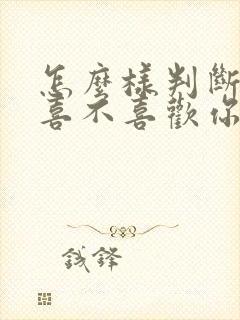 怎麼樣判斷
喜不喜歡你
錢鋒